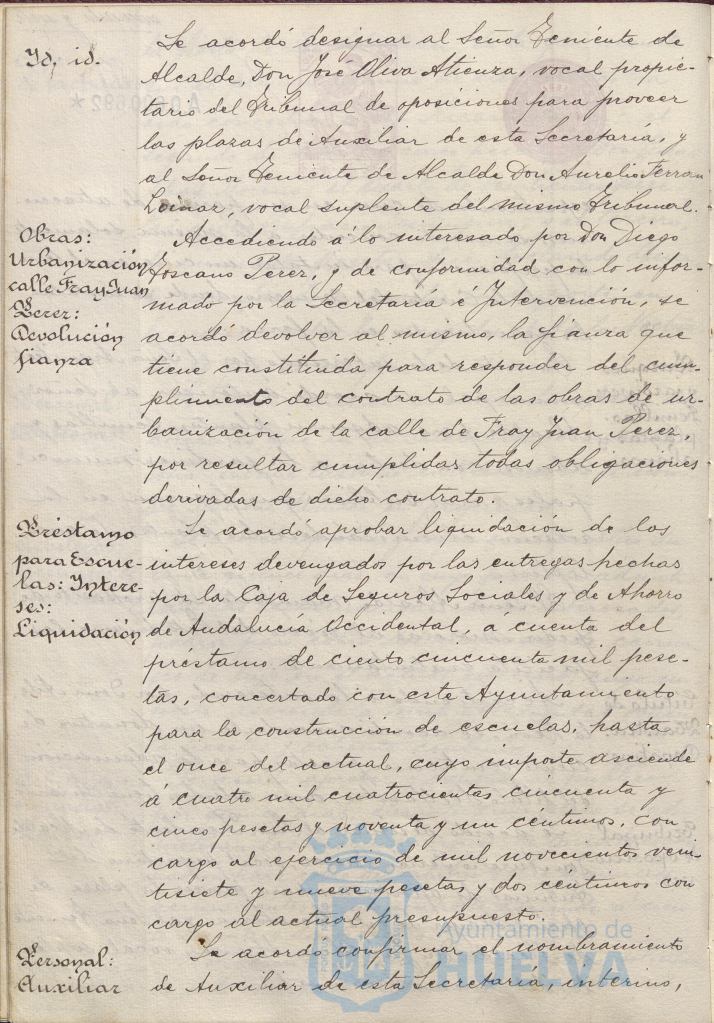 Id. id.
Se acordó designar al Señor Teniente de
Alcalde, Don José Oliva Atienza, vocal propie-
tario del Tribunal de oposiciones para proveer
las plazas de Auxiliar de esta Secretaría, y
al Señor Teniente de Alcalde Don Aurelio Ferran
vocal suplente del mismo Tribunal.
Obras:
Urbanización
calle Fray Juan
Perez:
Devolución
fianza
Accediendo á lo interesado por Don Diego
Toscano Perez, y de conformidad con lo infor-
mado por la Secretaría é Intervención, se
acordó devolver al mismo, la fianza que
tiene constituida para responder del cum-
plimiento del contrato de las obras de ur-
banización de la calle de Fray Juan Perez,
por resultar cumplidas todas obligaciones
derivadas de dicho contrato.
Préstamo
para Escue-
las: Intere-
ses:
Liquidación
Se acordó aprobar liquidación de los
intereses devengados por las entregas hechas
por la Caja de Seguros Sociales y de Ahorro
de Andalucía Occidental, á cuenta del
préstamo de ciento cincuenta mil pese-
tas, concertado con este Ayuntamiento
para la construcción de escuelas, hasta
el once del actual, cuyo importe asciende
á cuatro mil cuatrocientas cincuenta y
cinco pesetas y noventa y un céntimos, con
cargo al ejercicio de mil novecientos vein-
tisiete y nueve pesetas y dos céntimos con
cargo al actual presupuesto.
Personal:
Auxiliar
Se acordó confirmar el nombramiento
de Auxiliar de esta Secretaría, interino,
Ayuntamiento de
HUELVA